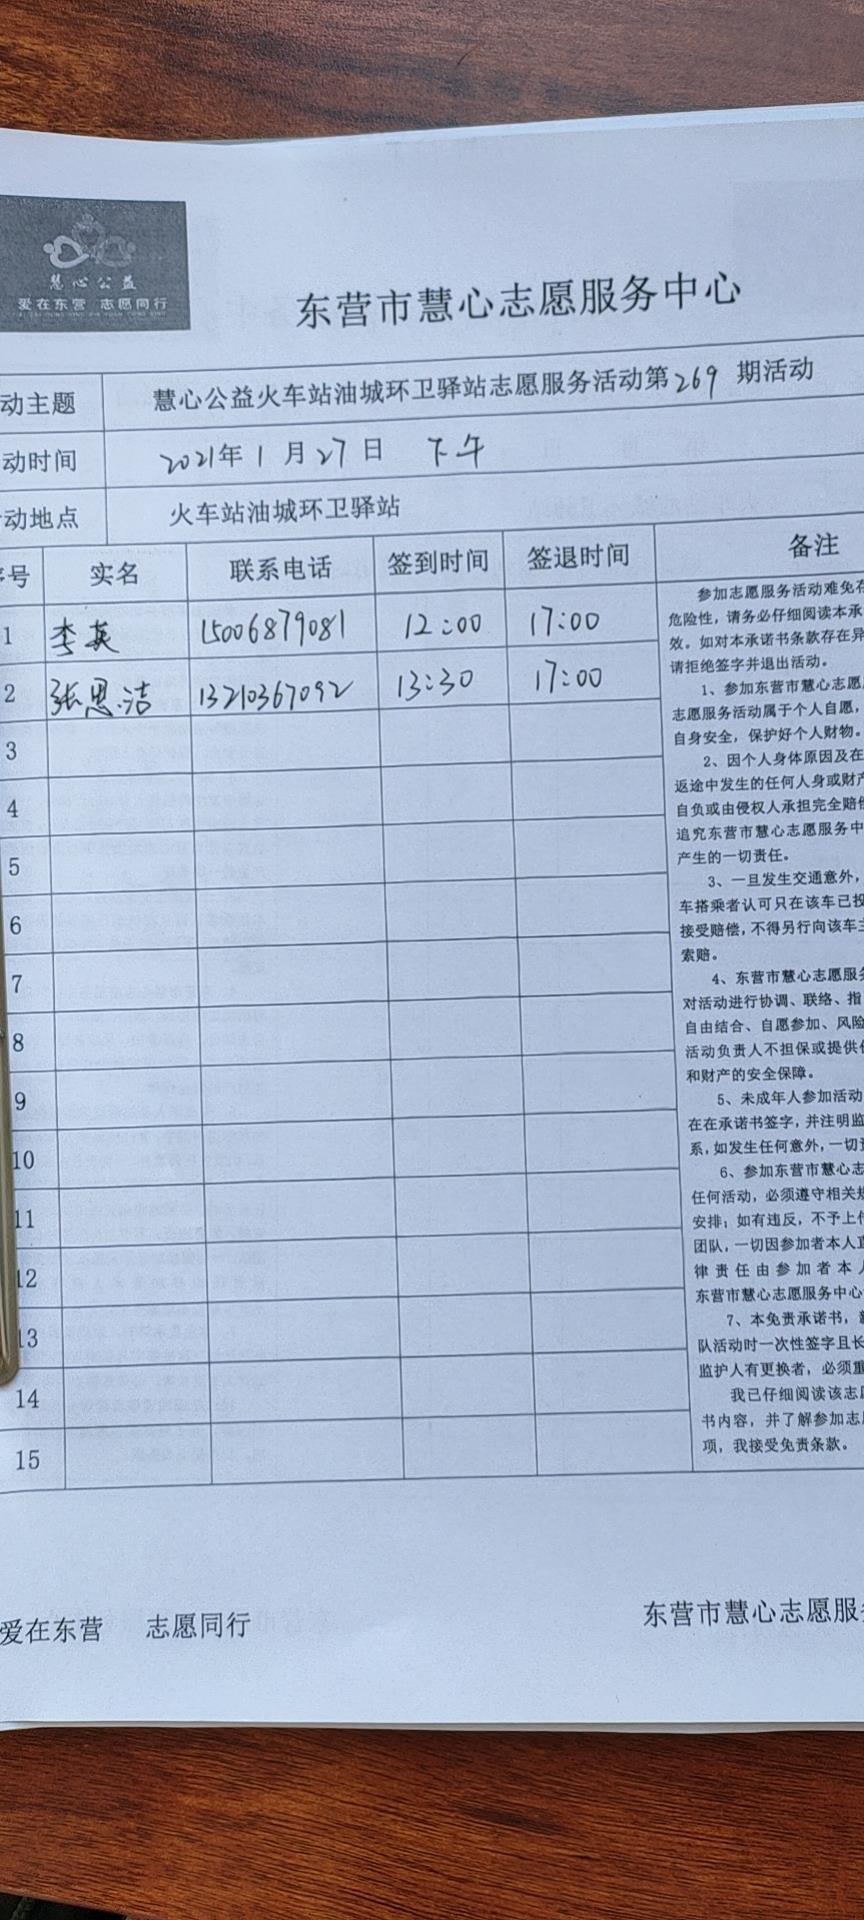 慧心公益
爱在东营 志愿同行
东营市慧心志愿服务中心
动主题 慧心公益火车站油城环卫驿站志愿服务活动第269期活动
动时间 2021年1月27日 下午
动地点 火车站油城环卫驿站
序号 实名 联系电话 签到时间 签退时间 备注
1 李英 15006879081 12:00 17:00
2 张思洁 13210367092 13:30 17:00
3
4
5
6
7
8
9
10
11
12
13
14
15
参加志愿服务活动难免存
危险性，请务必仔细阅读本承
效。如对本承诺书条款存在异
请拒绝签字并退出活动。
1、参加东营市慧心志愿
志愿服务活动属于个人自愿，
自身安全，保护好个人财物。
2、因个人身体原因及在
返途中发生的任何人身或财产
自负或由侵权人承担完全赔偿
追究东营市慧心志愿服务中
产生的一切责任。
3、一旦发生交通意外，
车搭乘者认可只在该车已投
接受赔偿，不得另行向该车主
索赔。
4、东营市慧心志愿服务
对活动进行协调、联络、指
自由结合、自愿参加、风险
活动负责人不担保或提供任
和财产的安全保障。
5、未成年人参加活动
在在承诺书签字，并注明监
系，如发生任何意外，一切责
6、参加东营市慧心志
任何活动，必须遵守相关规
安排；如有违反，不予上
团队，一切因参加者本人直
律责任由参加者本人
东营市慧心志愿服务中心
7、本免责承诺书，
队活动时一次性签字且长
监护人有更换者，必须重
我已仔细阅读该志愿
书内容，并了解参加志愿
项，我接受免责条款。
爱在东营 志愿同行
东营市慧心志愿服务